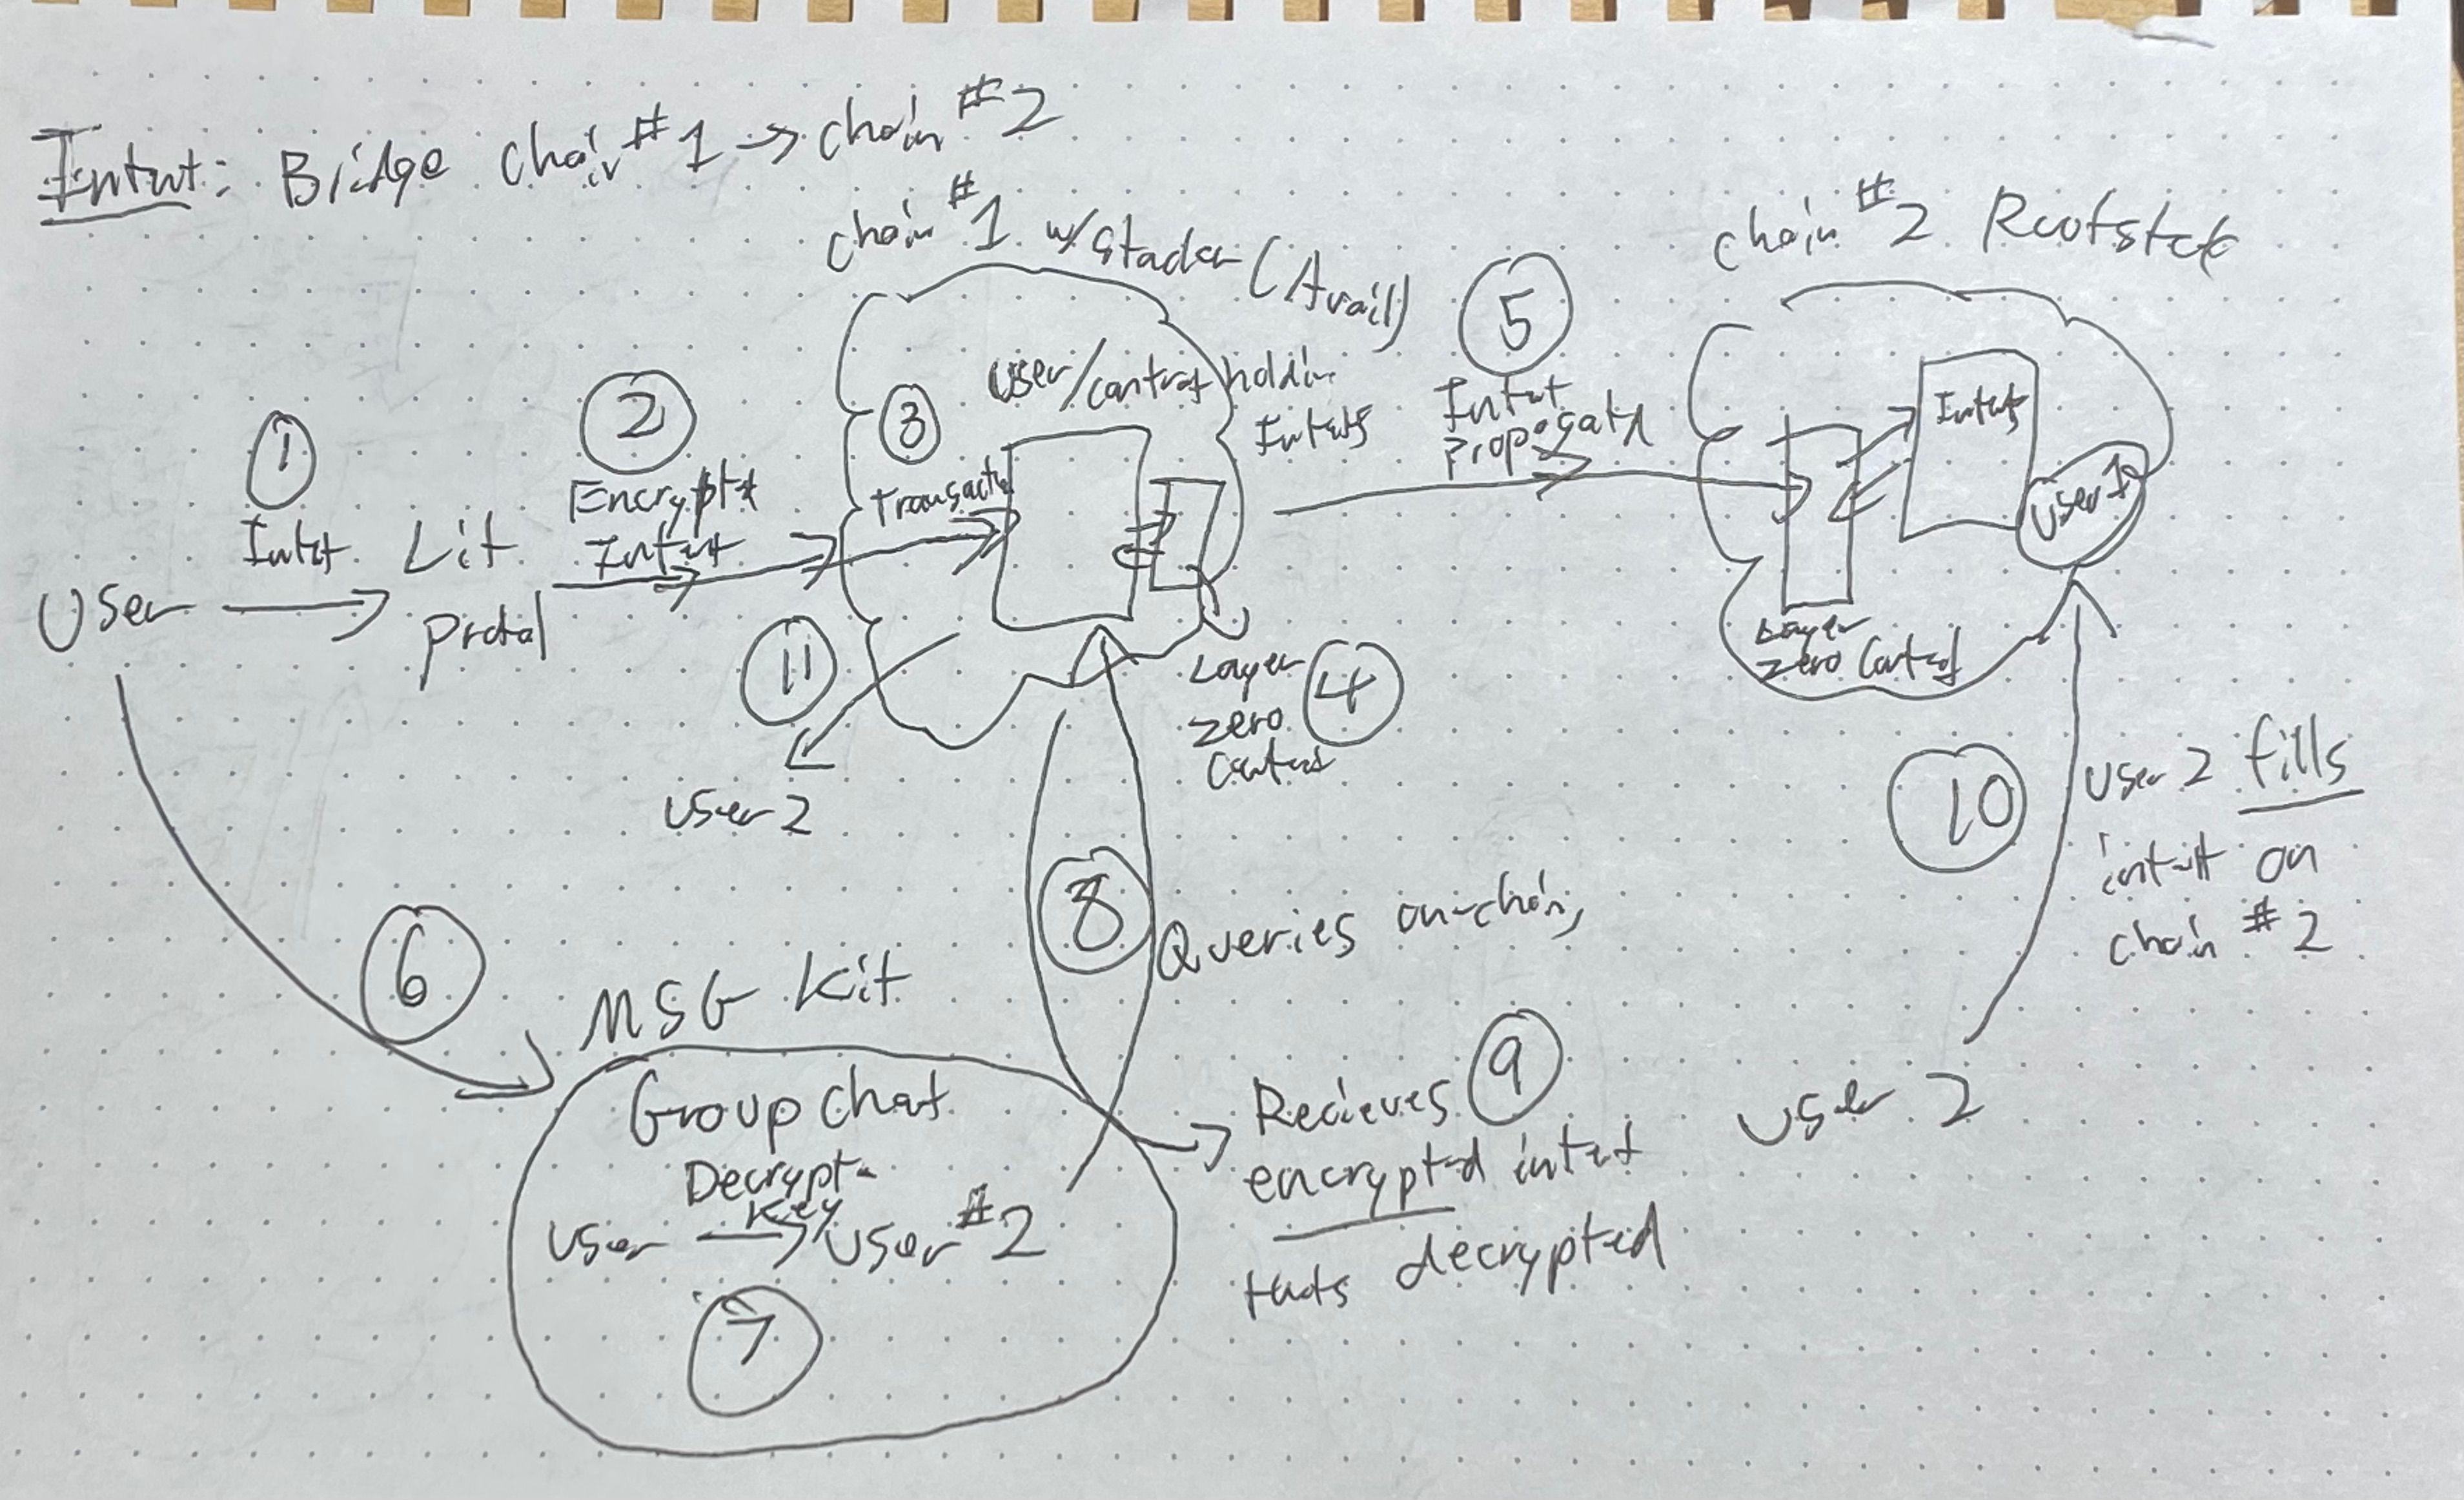 Intent: Bridge chain #1 → chain #2
chain #1 w/ stackr (Avail)
chain #2 Rootstck
1
Intent
User → Lit
Protocol
2
Encrypted
Intent
3
Transaction
User/contract holding
Intents
Layer
zero
Contract
4
5
Intent
Propogated
Intents
User 1
Layer
zero Contract
11
User 2
6
MSG Kit
Group Chat
Decrypt
Key
User → User #2
7
8
Queries on-chain,
9
Recieves
encrypted intent
thats decrypted
User 2
10
User 2 fills
intent on
chain #2